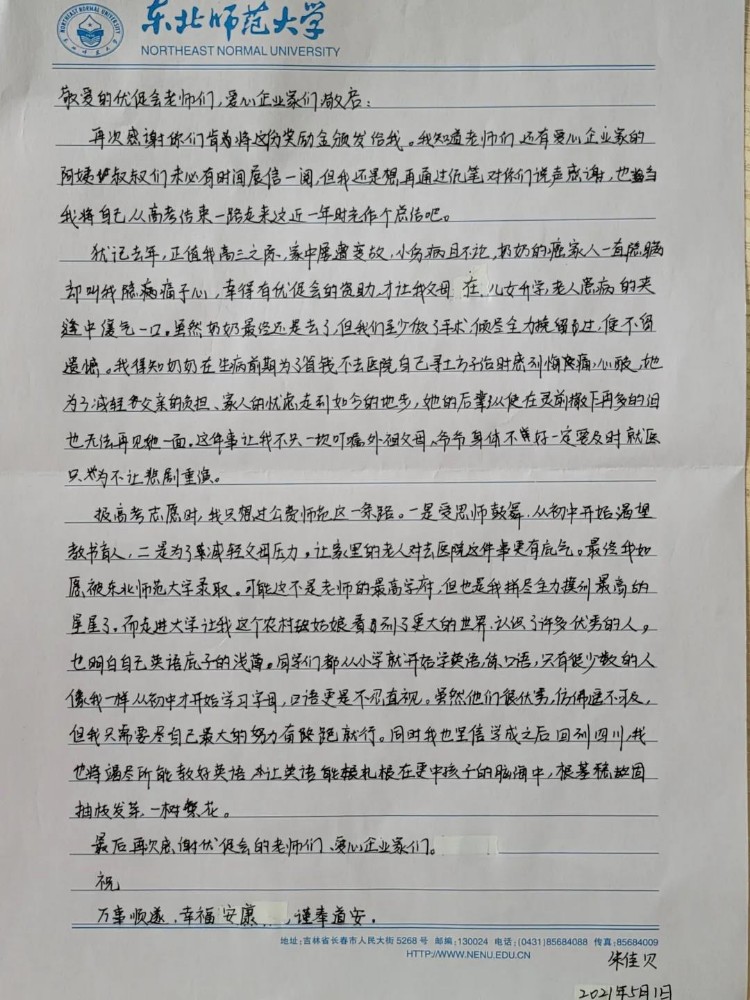 NORTHEAST NORMAL UNIVERSITY
东北师范大学
东北师范大学
NORTHEAST NORMAL UNIVERSITY
敬爱的优促会老师们,爱心企业家们敬启:
再次感谢你们肯将这份奖励金颁发给我。我知道老师们,还有爱心企业家的
阿姨叔叔们未必有时间展信一阅,但我还是想再通过纸笔对你们说声感谢,也当
我将自己从高考结束一路走来这近一年时光作个总结吧。
犹记去年,正值我高三之际,家中屡遭变故,小伤病且不论,奶奶的癌家人一直隐瞒
却叫我隐痛于心,幸得有优促会的资助,才让我父母在儿女升学,老人患病的夹
缝中缓气一口。虽然奶奶最终还是去了,但我们至少做了手术,倾尽全力挽留过,便不留
遗憾。我得知奶奶在生病前期为了省钱不去医院自己寻土方子治时感到悔疼痛心酸,她
为了减轻父亲的负担、家人的忧虑走到如今的地步,她的后辈纵使在灵前撒下再多的泪
也无法再见她一面。这件事让我不只一次叮嘱外祖父母、爷爷身体不好一定要及时就医
只为不让悲剧重演。
报高考志愿时,我只想过公费师范这一条路。一是受恩师鼓舞,从初中开始渴望
教书育人,二是为了减轻父母压力。让家里的老人对去医院这件事更有底气。最终我如
愿被东北师范大学录取。可能这不是老师的最高学府,但也是我拼尽全力摸到最高的
星星了。而走进大学让我这个农村姑娘看到了更大的世界,认识了许多优秀的人。
也明白自己英语底子的浅薄。同学们都从小学就开始学英语,练口语,只有很少数的人
像我一样从初中才开始学习字母,口语更是不忍直视。虽然他们很优秀,仿佛遥不可及,
但我只需要尽自己最大的努力奋跑就行。同时我也坚信学成之后回到四川,我
也将竭尽所能教好英语,让英语能扎根在更中孩子的脑海中,根基稳固
抽枝发芽,一树繁花。
最后再次感谢优促会的老师们、爱心企业家们。
祝
万事顺遂,幸福安康,谨奉道安。
地址:吉林省长春市人民大街5268号 邮编:130024 电话:(0431)85684088 传真:85684009
HTTP://WWW.NENU.EDU.CN
朱佳贝
2021年5月1日